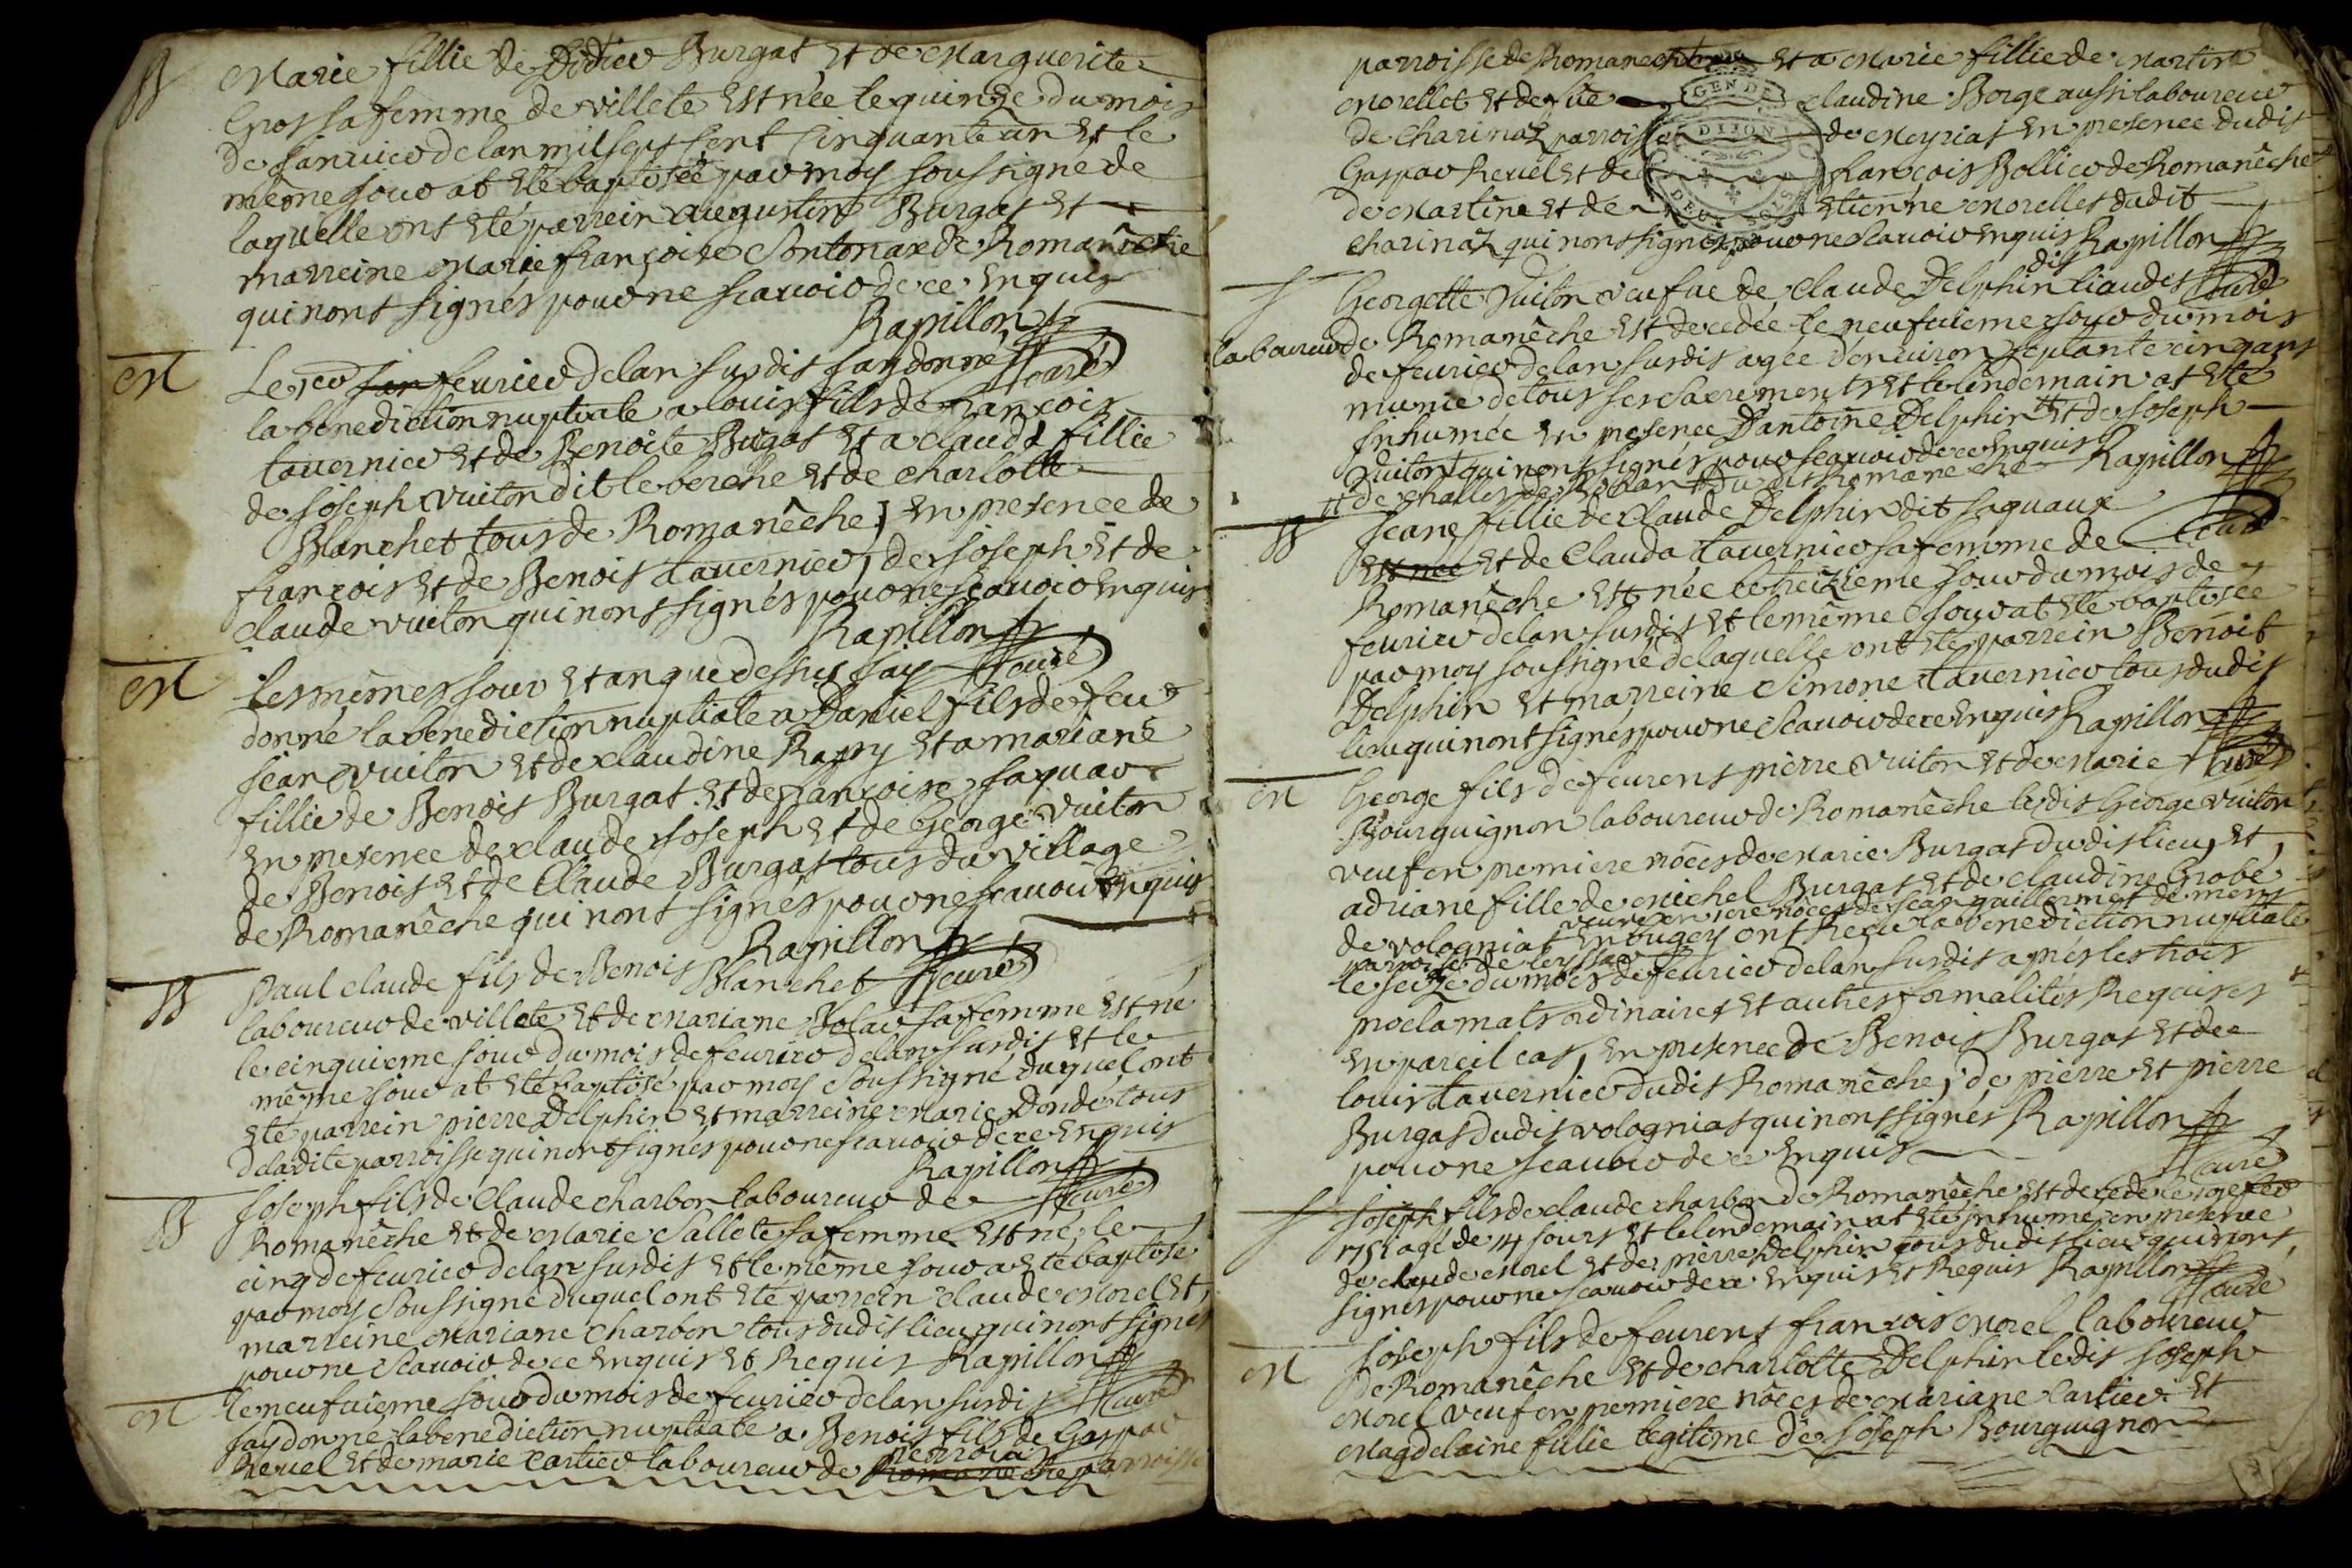 B Marie fillie de Didier Burgat et de Marguerite
Gros sa femme de villete est née le quinze du mois
de janvier de lan mil sept sent cinquante un et le
même jour at eté baptisée par moy soussigné de
laquelle ont eté parrein augustin Burgat et
marreine Marie françoise Sontonax de Romanêche
qui nont signés pour ne scavoir de ce enquis
Rapillon
curé
M Le 1er feurier delan susdit jay donné
la benediction nuptiale a louis fils de françois
tavernier et de Benoite Burgat et a clauda fillie
de joseph vuiton dit le berche et de charlotte
Blanchet tous de Romanêche, en presence de
françois et de Benoit tavernier, de joseph et de
claude vuiton qui nont signés pour ne scavoir enquis
Rapillon
curé
M Les mêmes jour et an que dessus jay
donné la benediction nuptiale a Daniel fils de feu
jean vuiton et de claudine Rapy et a mariane
fillie de Benoit Burgat et de françoise jaquar
en presence de claude joseph et de George vuiton
de Benoit et de Claude Burgat tous du village
de Romanêche qui nont signés pour ne scavoir enquis
Rapillon
curé
B Paul claude fils de Benoit Blanchet
laboureur de villete et de Mariane Bolar sa femme est né
le cinquieme jour du mois de feurier delan susdit et le
même jour at eté baptisé par moy soussigné duquel ont
eté parrein pierre Delphin et marreine Marie Donde tous
deladite parroisse qui nont signés pour ne scavoir de ce enquis
Rapillon
curé
B joseph fils de Claude charbon laboureur de
Romanêche et de Marie Sallete sa femme est né le
cinq de feurier delan susdit et le même jour a eté baptisé
par moy soussigné duquel ont eté parrein claude Morel et
marreine Mariane charbon tous dudit lieu qui nont signés
pour ne scavoir de ce enquis et Requis Rapillon
curé
M le neufuieme jour du mois de feurier delan susdit
jay donné la benediction nuptiale a Benoit fils de Gaspar
Reuel et de marie cartier laboureur de Romanêche parroisse
parroisse de Romanêche et a Marie fillie de Martin
Morellet et de fûe claudine Borge aussi laboureur
de Charinaz parroisse de Meyriat en presence dudit
Gaspar Reuel et de françois Bollier de Romanêche
de Martin et de etienne Morellet dudit
charinaz qui nont signés pour ne scavoir enquis Rapillon
curé
S Georgette vuiton veufue de claude Delphin dit liaudet
laboureur de Romanêche est decedée le neufuieme jour du mois
de feurier delan susdit agée denuiron septante cinq ans
munie de tous ses sacrements et le lendemain at eté
inhumée en presence Dantoine Delphin et de joseph
vuiton qui nont signés pour scavoir de ce enquis
dudit Romanêche Rapillon
curé
B Jeane fillie de Claude Delphin dit jaquaux
est née et de Clauda tavernier sa femme de
Romanêche est née le treizieme jour du mois de
feurier delan susdit et le même jour at eté baptisée
par moy soussigné delaquelle ont eté parrein Benoit
Delphin et marreine Simone tavernier tous dudit
lieu qui nont signés pour ne scavoir de ce enquis Rapillon
curé
M George fils de feu rent pierre vuiton et de Marie
Bourguignon laboureur de Romanêche ledit George vuiton
veuf en premiere nôces de Marie Burgat dudit lieu, et
adriane fille de Michel Burgat et de claudine Grobe
veuve en 1ere nôces de jean guillermet de
de volognat en bugey ont Reçu la benediction nuptiale
parroisse de
le seize du mois de feurier delan susdit après les trois
proclamats ordinaires et autres formalités Requises
en pareil cas, en presence de Benoit Burgat et de
louis tavernier dudit Romanêche, de pierre et pierre
Burgat dudit volognat qui nont signés Rapillon
pour ne scavoir de ce enquis
curé
S joseph fils de claude charbon de Romanêche est decede le 19e feur
1751 agé de 14 jours et le lendemain at eté inhumé en presence
de claude Morel et de pierre Delphin tous dudit lieu qui nont
signés pour ne scavoir de ce enquis et Requis Rapillon
curé
M joseph fils de feu rent françois Morel laboureur
de Romanêche et de charlotte Delphin ledit joseph
Morel veuf en premiere nôces de Mariane cartier et
Magdelaine fillie legitime de joseph Bourguignon